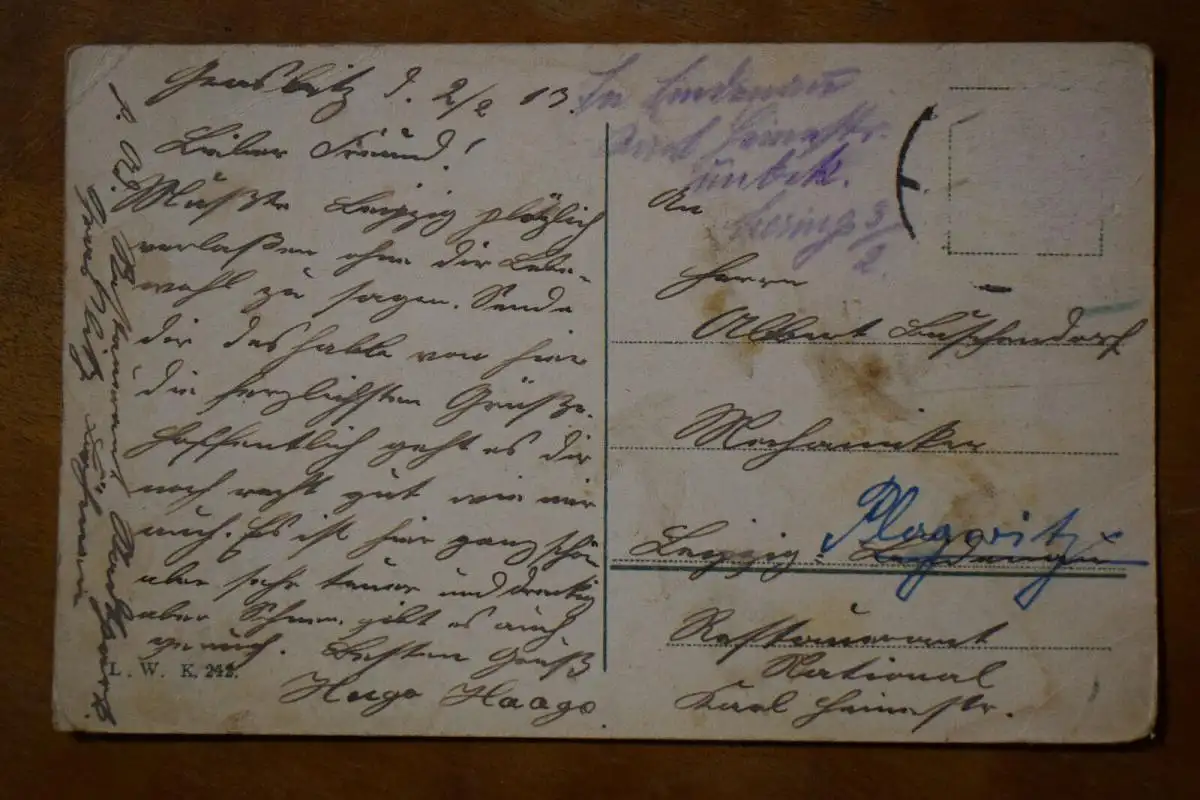 d. 2/2 13.
Lieber Freund!
Mußte Leipzig plötzlich
verlaßen ohne dir Lebe-
wohl zu sagen. Sende
dir deshalb von hier
die herzlichsten Grüße.
Hoffentlich geht es dir
noch recht gut wie mir
auch. Es ist hier ganz schön
aber sehr teuer und dreckig
aber Schnee gibt es auch
genug. Besten Gruß
Hugo Haage.
Restaurant
L. W. K. 242.
In Lindenau
Karl Heinestr.
unbek.
3/2
An
Herrn
Albert Buschendorf
Mechaniker
Leipzig-Lindenau
Plagwitz
Restaurant
National
Karl Heinestr.